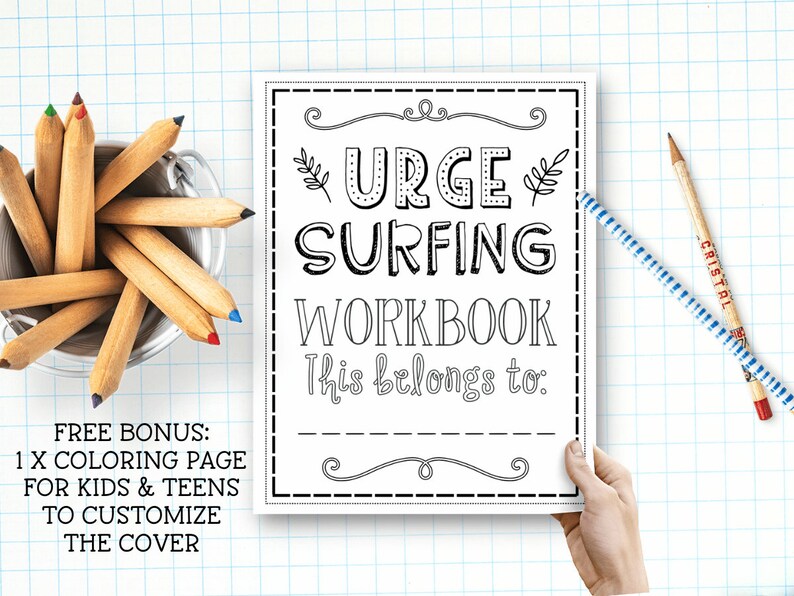 URGE
SURFING
WORKBOOK
This belongs to:
FREE BONUS:
1 X COLORING PAGE
FOR KIDS & TEENS
TO CUSTOMIZE
THE COVER
CRISTAL